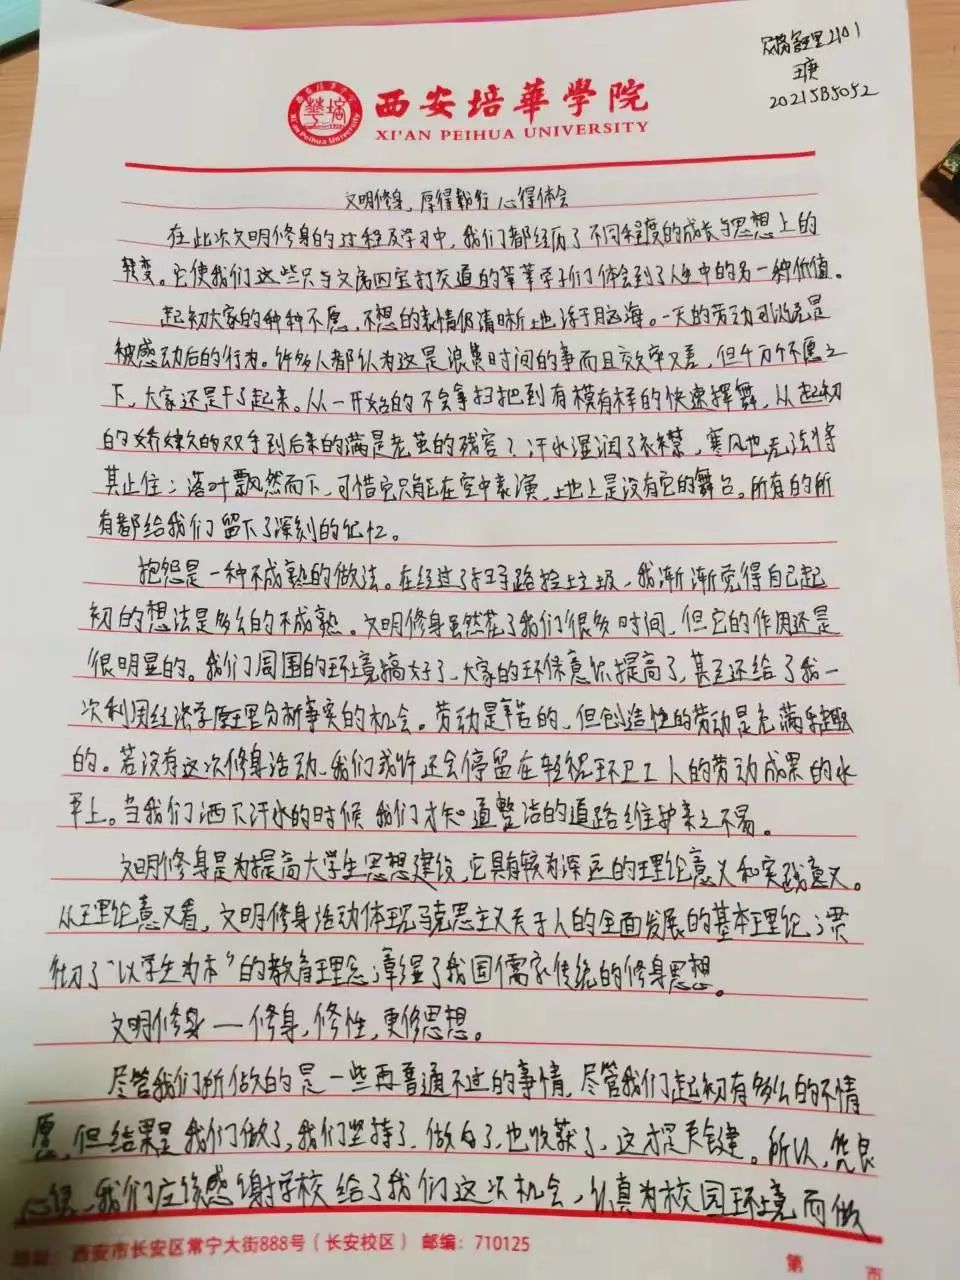 财务管理2101
王庚
20215B5052
西安培華學院
XI'AN PEIHUA UNIVERSITY
文明修身,厚得载行 心得体会
在此次文明修身的过程及学习中,我们都经历了不同程度的成长与思想上的
转变。它使我们这些只与文房四宝打交道的莘莘学子们体会到了人生中的另一种价值。
起初大家的种种不愿、不想的表情仍清晰地浮于脑海。一天的劳动可以说是
被感动后的行为。许多人都认为这是浪费时间的事而且效率又差,但千万个不愿之
下,大家还是干了起来。从一开始的不会拿扫把到有模有样的快速挥舞,从起初
的娇嫩的双手到后来的满是老茧的残容?汗水湿润了衣襟,寒风也无法将
其止住;落叶飘然而下,可惜它只能在空中表演,地上是没有它的舞台。所有的所
有都给我们留下了深刻的记忆。
抱怨是一种不成熟的做法。在经过了扫马路捡垃圾,我渐渐觉得自己起
初的想法是多么的不成熟。文明修身虽然花了我们很多时间,但它的作用还是
很明显的。我们周围的环境搞好了、大家的环保意识提高了,甚至还给了我一
次利用经济学原理分析事实的机会。劳动是辛苦的,但创造性的劳动是充满乐趣
的。若没有这次修身活动、我们或许还会停留在轻视环卫工人的劳动成果的水
平上。当我们洒下汗水的时候 我们才知道整洁的道路维护来之不易。
文明修身是为提高大学生思想建设,它具有较为深远的理论意义和实践意义。
从理论意义看,文明修身活动体现马克思主义关于人的全面发展的基本理论;贯
彻了“以学生为本”的教育理念;彰显了我国儒家传统的修身思想。
文明修身——修身,修性,更修思想。
尽管我们所做的是一些再普通不过的事情,尽管我们起初有多么的不情
愿,但结果是我们做了,我们坚持了、做到了、也收获了,这才是关键。所以,凭良
心讲,我们应该感谢学校给了我们这次机会,认真为校园环境而做
地址:西安市长安区常宁大街888号(长安校区) 邮编:710125
第 页